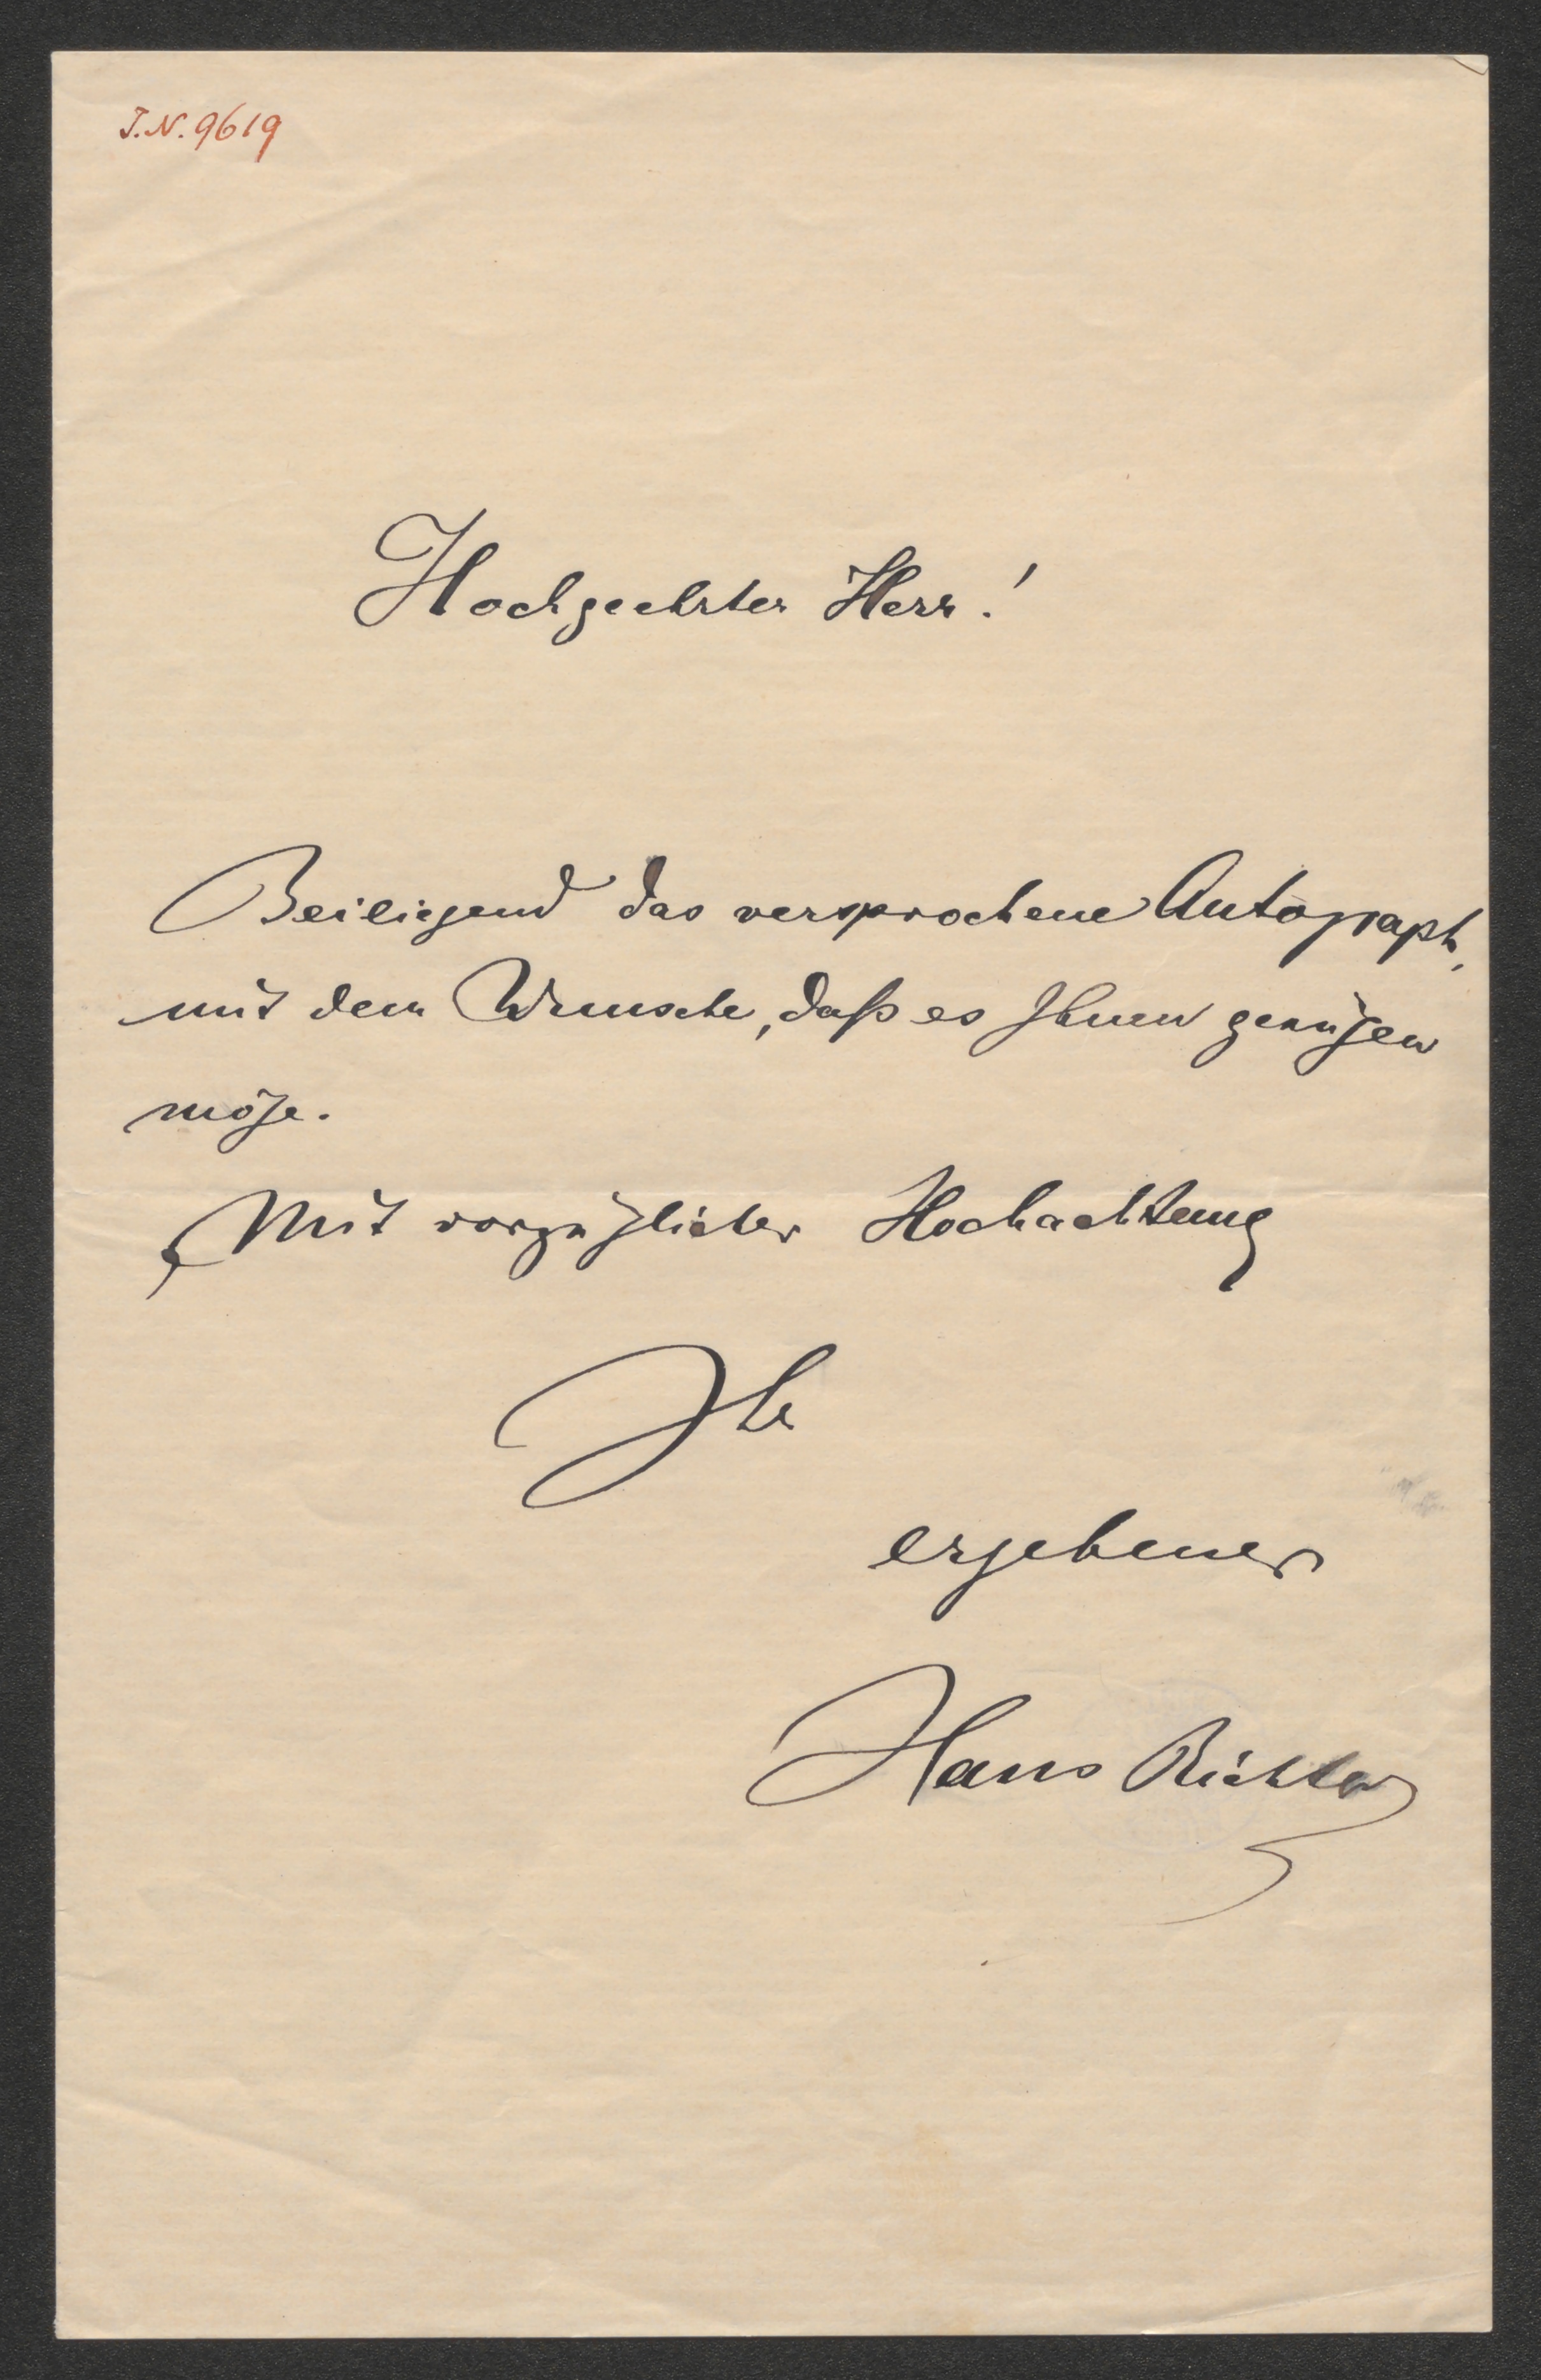 I.N. 9619
Hochgeehrter Herr!
Beiliegend das versprochene Autograph,
mit dem Wunsche, daß es Ihnen genügen
möge.
Mit vorzüglicher Hochachtung
Ihr
ergebener
Hans Richter